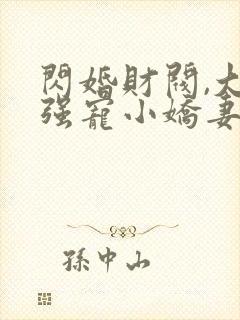 閃婚財閥,大
強寵小嬌妻
孫中山